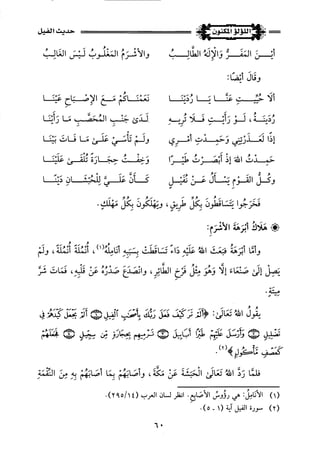 اللؤلؤ المكنون
حديث الفيل
أَيْــنَ الْمَفَــرُّ وَالْإِلَهُ الطَّالِـــبُ وَالْأَشْرَمُ الْمَغْلُوبُ لَيْسَ الْغَالِبُ
وَقَالَ أَيْضًا:
أَلَا حُيِّيــتِ عَنَّــا يَــا رُدَيْنَــا نَعِمْنَــاكُمْ مَــعَ الْإِصْبَــاحِ عَيْنَــا
رُدَيْنَــةُ، لَــوْ رَأَيْــتِ فَــلَا تُرِيــهِ لَــدَى جَنْــبِ الْمُحَصَّــبِ مَــا رَأَيْنَا
إِذًا لَعَــذَرْتِنِي وَحَمِــدْتِ أَمْــرِي وَلَــمْ تَأْسَــيْ عَلَــى مَــا فَــاتَ بَيْنَا
حَمِــدْتُ اللهَ إِذْ أَبْصَــرْتُ طَيْــرًا وَخِفْــتُ حِجَــارَةً تُلْقَــى عَلَيْنَــا
وَكُــلُّ الْقَــوْمِ يَسْــأَلُ عَــنْ نُفَيْــلٍ كَــأَنَّ عَلَــيَّ لِلْحُبْشَــانِ دَيْنَــا
فَخَرَجُوا يَتَسَاقَطُونَ بِكُلِّ طَرِيقٍ، وَيَهْلَكُونَ بِكُلِّ مَهْلَكٍ.
* هَلَاكُ أَبْرَهَةَ الْأَشْرَمِ:
وَأَمَّا أَبْرَهَةُ فَبَعَثَ اللهُ عَلَيْهِ دَاءً تَسَاقَطَتْ بِسَبَبِهِ أَنَامِلُهُ(١)، أُنْمُلَةً أُنْمُلَةً، وَلَمْ
يَصِلْ إِلَى صَنْعَاءَ إِلَّا وَهُوَ مِثْلُ فَرْخِ الطَّائِرِ، وَانْصَدَعَ صَدْرُهُ عَنْ قَلْبِهِ، فَمَاتَ شَرَّ
مِيتَةٍ.
يَقُولُ اللهُ تَعَالَى: ﴿أَلَمْ تَرَ كَيْفَ فَعَلَ رَبُّكَ بِأَصْحَٰبِ ٱلْفِيلِ أَلَمْ يَجْعَلْ كَيْدَهُمْ فِى
تَضْلِيلٍ وَأَرْسَلَ عَلَيْهِمْ طَيْرًا أَبَابِيلَ تَرْمِيهِم بِحِجَارَةٍ مِّن سِجِّيلٍ فَجَعَلَهُمْ
كَعَصْفٍ مَّأْكُولٍ﴾(٢).
فَلَمَّا رَدَّ اللهُ تَعَالَى الْحَبَشَةَ عَنْ مَكَّةَ، وَأَصَابَهُمْ بِمَا أَصَابَهُمْ بِهِ مِنَ النِّقْمَةِ
(١) الْأَنَامِلُ: هي رؤوسُ الأصابع. انظر لسان العرب (٢٩٥/١٤).
(٢) سورة الفيل آية (١ - ٥).
٦٠